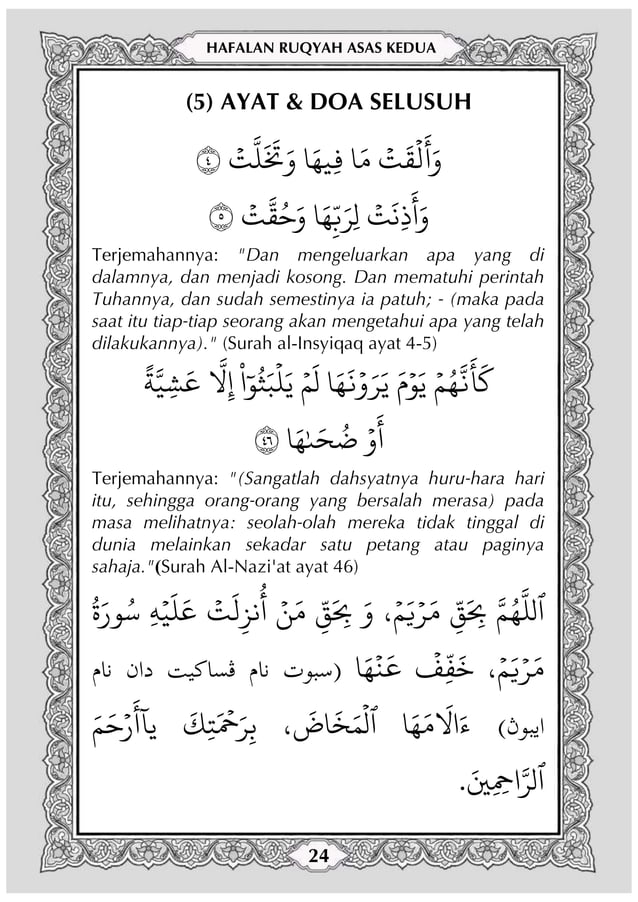 HAFALAN RUQYAH ASAS KEDUA
(5) AYAT & DOA SELUSUH
وَأَلۡقَتۡ مَا فِيهَا وَتَخَلَّتۡ ٤
وَأَذِنَتۡ لِرَبِّهَا وَحُقَّتۡ ٥
Terjemahannya: "Dan mengeluarkan apa yang di
dalamnya, dan menjadi kosong. Dan mematuhi perintah
Tuhannya, dan sudah semestinya ia patuh; - (maka pada
saat itu tiap-tiap seorang akan mengetahui apa yang telah
dilakukannya)." (Surah al-Insyiqaq ayat 4-5)
كَأَنَّهُمۡ يَوۡمَ يَرَوۡنَهَا لَمۡ يَلۡبَثُوٓاْ إِلَّا عَشِيَّةً
أَوۡ ضُحَىٰهَا ٤٦
Terjemahannya: "(Sangatlah dahsyatnya huru-hara hari
itu, sehingga orang-orang yang bersalah merasa) pada
masa melihatnya: seolah-olah mereka tidak tinggal di
dunia melainkan sekadar satu petang atau paginya
sahaja."(Surah Al-Nazi'at ayat 46)
ٱللَّهُمَّ بِحَقِّ مَرۡيَمۡ، وَ بِحَقِّ مَنۡ أُنزِلَتۡ عَلَيۡهِ سُورَةُ
مَرۡيَمۡ، خَفِّفۡ عَنۡهَا (سبوت نام ڤساكيت دان نام
ايبوڽ) ءَالَامَهَا ٱلۡمَخَاضَ، بِرَحۡمَتِكَ يآأَرۡحَمَ
ٱلرَّاحِمِينَ.
24